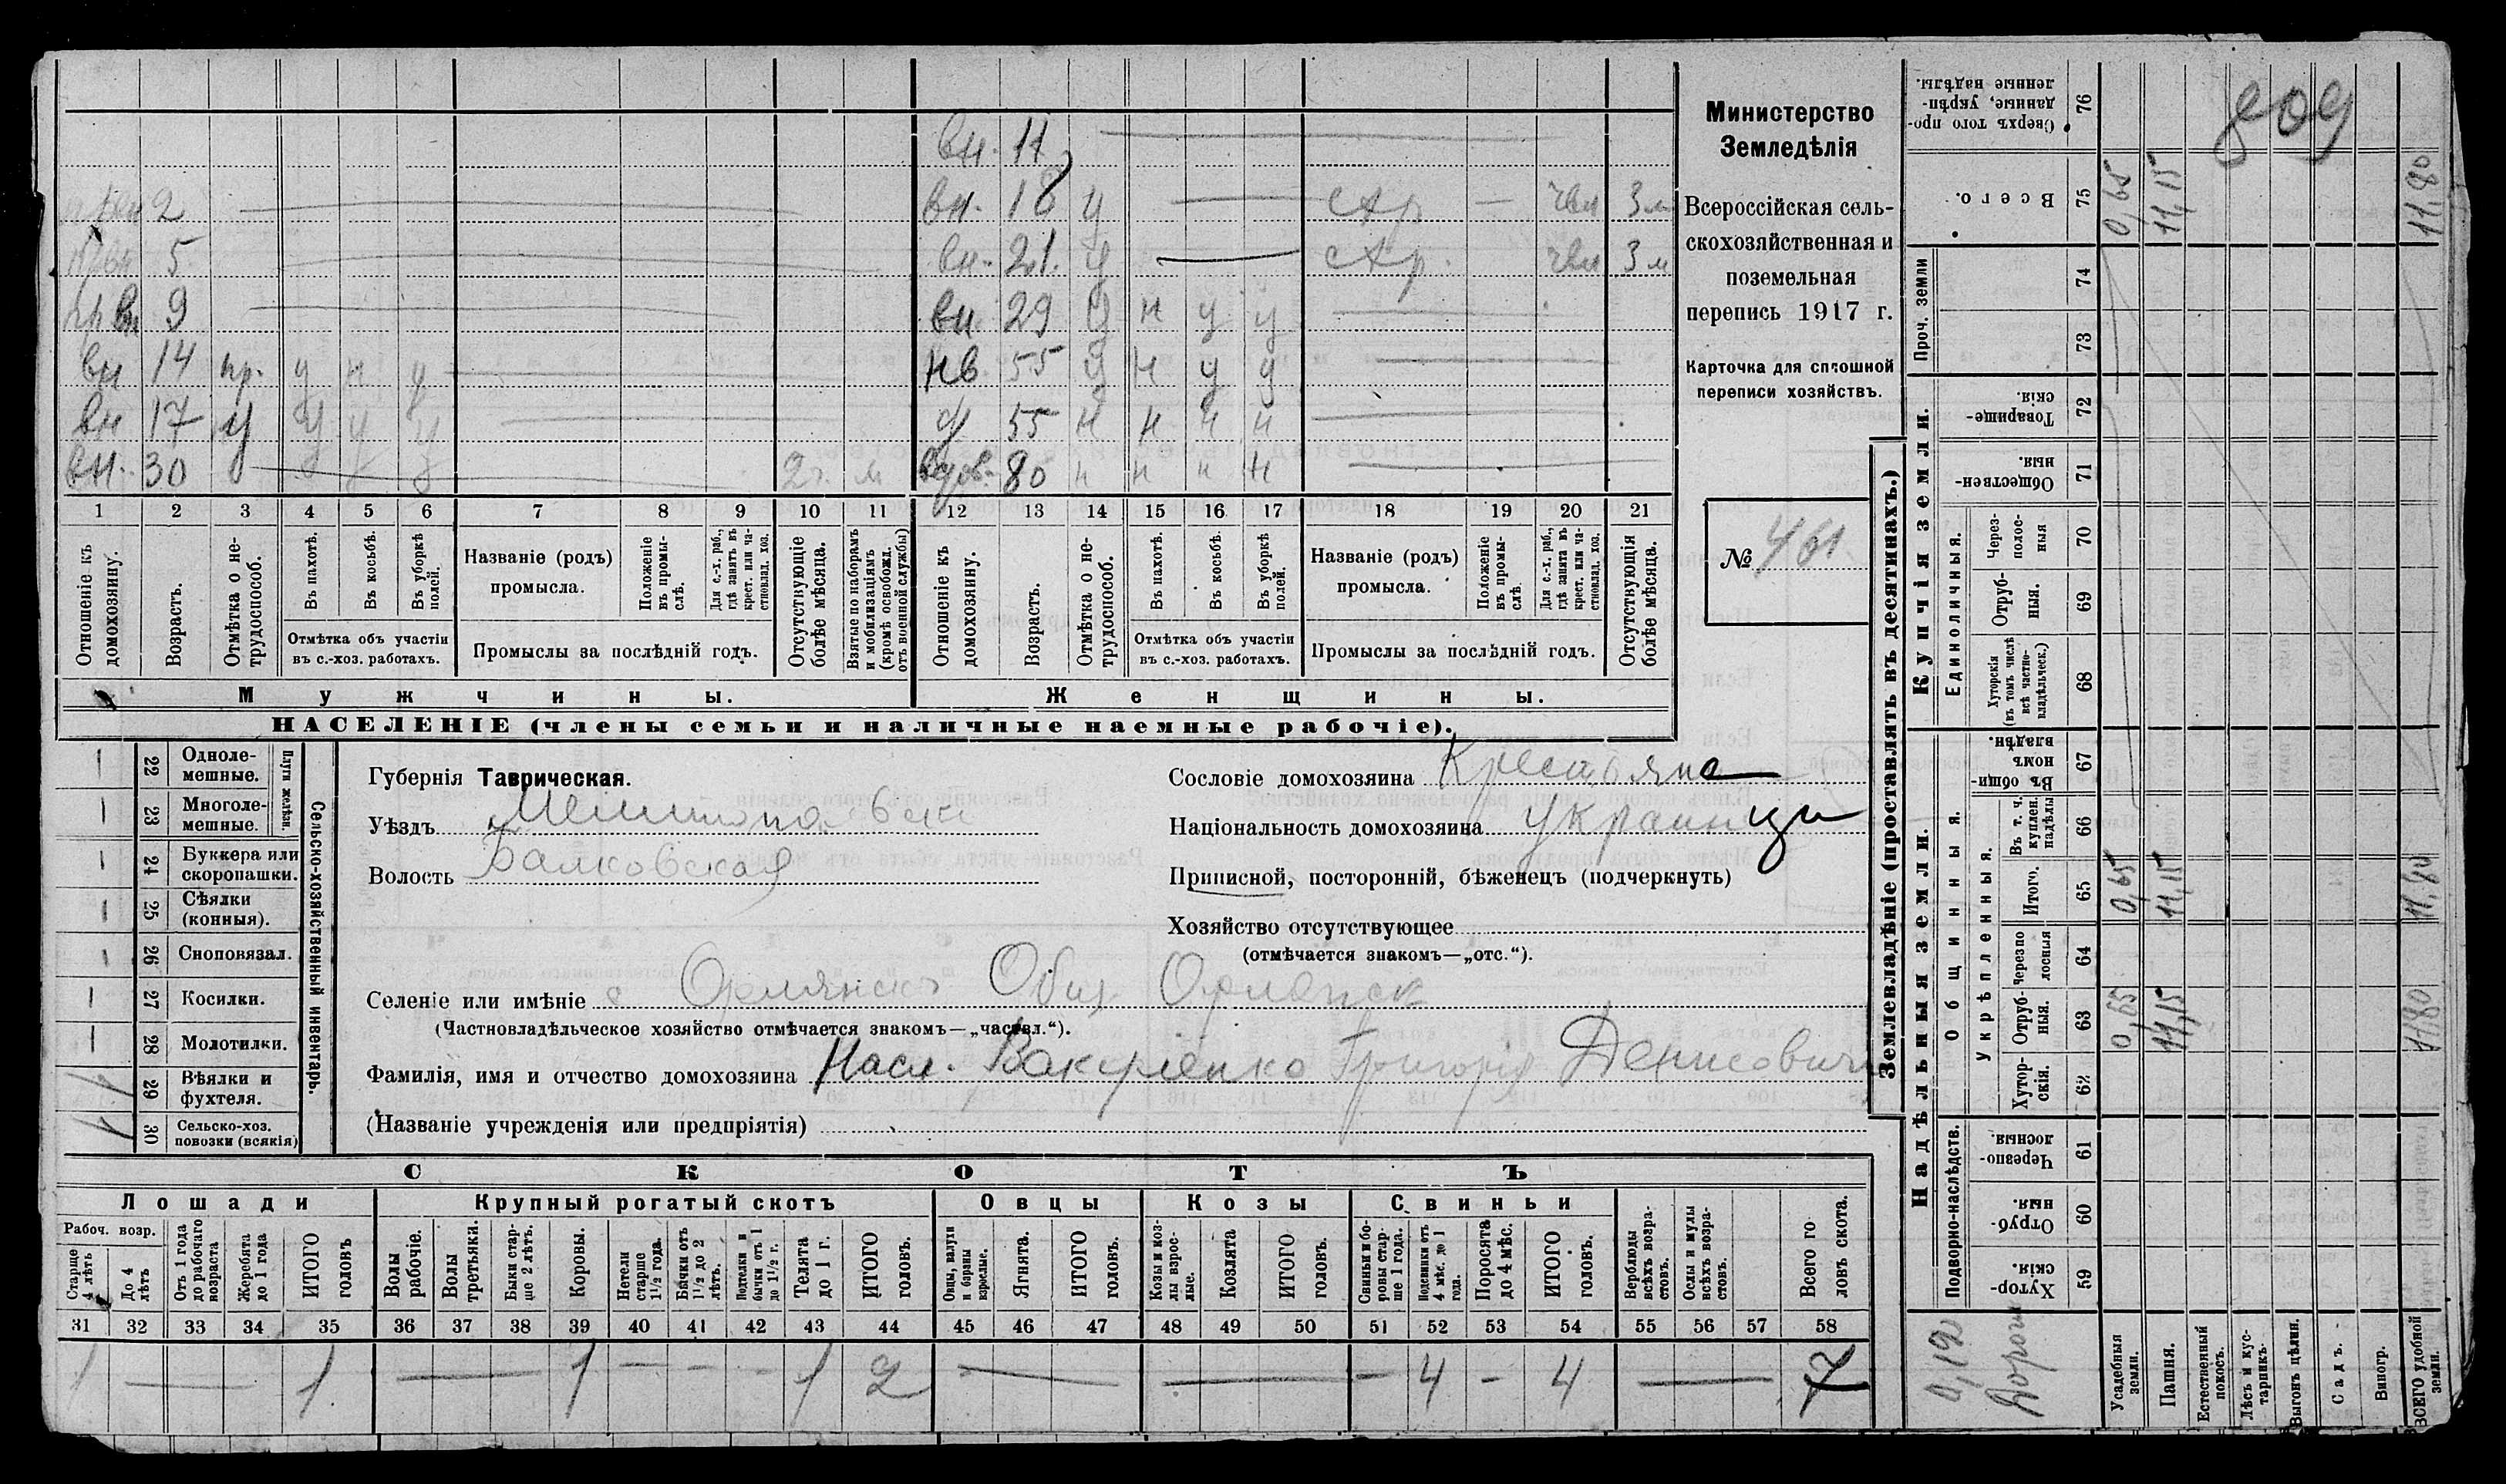 вн. 11
вн. 18 у — — ч.вл 3 м
вн. 21 у — ч.вл 3 м
вн 29 у н у у
нв 55 у н у у
55 н н н н
вдов. 80 н н н н
2
5
пр вн 9
вн 14 пр. у н у
вн 17 у у у у
вн. 30
1 2 3 4 5 6 7 8 9 10 11 12 13 14 15 16 17 18 19 20 21
Отношеніе къ домохозяину.
Возрастъ.
Отмѣтка о нетрудоспособ.
Въ пахотѣ.
Въ косьбѣ.
Въ уборкѣ полей.
Отмѣтка объ участіи въ с.-хоз. работахъ.
Названіе (родъ) промысла.
Положеніе въ промыслѣ.
Для с.-х. раб., гдѣ занятъ въ крест. или частновлад. хоз.
Промыслы за послѣдній годъ.
Отсутствующіе болѣе мѣсяца.
Взятые по наборамъ и мобилизаціямъ (кромѣ освобожд. отъ военной службы)
Отношеніе къ домохозяину.
Возрастъ.
Отмѣтка о нетрудоспособ.
Въ пахотѣ.
Въ косьбѣ.
Въ уборкѣ полей.
Отмѣтка объ участіи въ с.-хоз. работахъ.
Названіе (родъ) промысла.
Положеніе въ промыслѣ
Для с.-х. раб., гдѣ занята въ крест. или частновлад. хоз.
Промыслы за послѣдній годъ.
Отсутствующія болѣе мѣсяца.
Мужчины.
Женщины.
НАСЕЛЕНІЕ (члены семьи и наличные наемные рабочіе).
Министерство
Земледѣлія
Всероссійская сель-
скохозяйственная и
поземельная
перепись 1917 г.
Карточка для сплошной
переписи хозяйствъ.
№ 461
Сельско-хозяйственный инвентарь.
Плуги желѣзн.
22 Однолемешные.
23 Многолемешные.
24 Буккера или скоропашки.
25 Сѣялки (конныя).
26 Сноповязал.
27 Косилки.
28 Молотилки.
29 Вѣялки и фухтеля.
30 Сельско-хоз. повозки (всякія)
Губернія Таврическая.
Уѣздъ
Волость Балковская
Сословіе домохозяина
Національность домохозяина украинцы
Приписной, посторонній, бѣженецъ (подчеркнуть)
Хозяйство отсутствующее
(отмѣчается знакомъ—„отс.“).
Селеніе или имѣніе с Орлянскъ Общ Орлянск
(Частновладѣльческое хозяйство отмѣчается знакомъ—„частвл.“).
Фамилія, имя и отчество домохозяина Насл. Григорій Денисович
(Названіе учрежденія или предпріятія)
СКОТЪ
Лошади
Крупный рогатый скотъ
Овцы
Козы
Свиньи
Рабоч. возр.
Старше 4 лѣтъ
До 4 лѣтъ
Отъ 1 года до рабочаго возраста
Жеребята до 1 года
ИТОГО головъ
Волы рабочіе.
Волы третьяки.
Быки старше 2 лѣтъ.
Коровы.
Нетели старше 1½ года.
Бычки отъ 1½ до 2 лѣтъ.
Подтелки и бычки отъ 1 до 1½ г.
Телята до 1 г.
ИТОГО головъ.
Овцы, валухи и бараны взрослые.
Ягнята.
ИТОГО головъ.
Козы и козлы взрослые.
Козлята
ИТОГО головъ.
Свиньи и боровы старше 1 года.
Подсвинки отъ 4 мѣс. до 1 года.
Поросята до 4 мѣс.
ИТОГО головъ.
Верблюды всѣхъ возрастовъ.
Ослы и мулы всѣхъ возрастовъ.
Всего головъ скота.
31 32 33 34 35 36 37 38 39 40 41 42 43 44 45 46 47 48 49 50 51 52 53 54 55 56 57 58
1 — 1 — 1 — - - 1 2 — — — 4 - 4 — 7
Землевладѣніе (проставлять въ десятинахъ.)
Купчія земли.
Надѣльныя земли.
Сверхъ того проданные, укрѣпленные надѣлы. 76
Всего. 75 0,65 11,15 11,80
Проч. земли
74
73
Товарищескія. 72
Общественныя. 71
Единоличныя.
Черезполосныя 70
Отрубныя. 69
Хуторскія (въ томъ числѣ всѣ частновладѣльческ.) 68
Общинныя.
Въ общинномъ владѣн. 67
Укрѣпленныя.
Въ т. ч. куплен. надѣлы 66
Итого. 65 0,65 11,15 11,80
Черезполосныя 64
Отрубныя. 63 11,15 11,80
Хуторскія. 62
Подворно-наслѣдств.
Черезполосныя. 61
Отрубныя. 60
Хуторскія. 59
Усадебныя земли.
Пашня.
Естественный покосъ.
Лѣсъ и кустарникъ.
Выгонъ цѣлин.
Садъ.
Виногр.
ВСЕГО удобной земли.